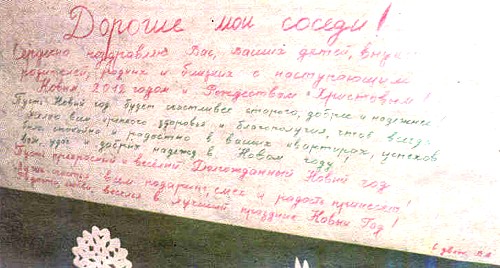 Дорогие мои соседи!
Сердечно поздравляю Вас, Ваших детей, внуков
родителей, родных и близких с наступающим
Новым, 2012 годом и Рождеством Христовым!
Пусть Новый год будет счастливее старого, добрее и надежнее!
Желаю вам крепкого здоровья и благополучия, чтоб всегда
было спокойно и радостно в ваших квартирах, успехов
вам, удач и добрых надежд в Новом году!
Пусть прекрасный и весёлый Долгожданный Новый год
счастья всем подарит, смех и радость принесет!
весело в лучший праздник Новый Год!